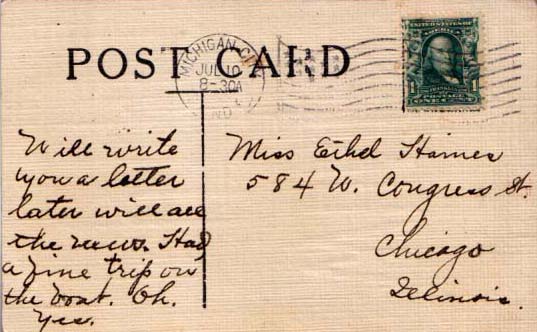 POST CARD
MICHIGAN CITY
JUL 10
8-30A
IND
UNITED STATES OF AMERICA
FRANKLIN
POSTAGE
1 ONE CENT 1
Will write
you a letter
later with all
the news. Had
a fine trip on
the boat. Oh.
Yes.
Miss Ethel Hames
584 W. Congress St.
Chicago
Illinois.